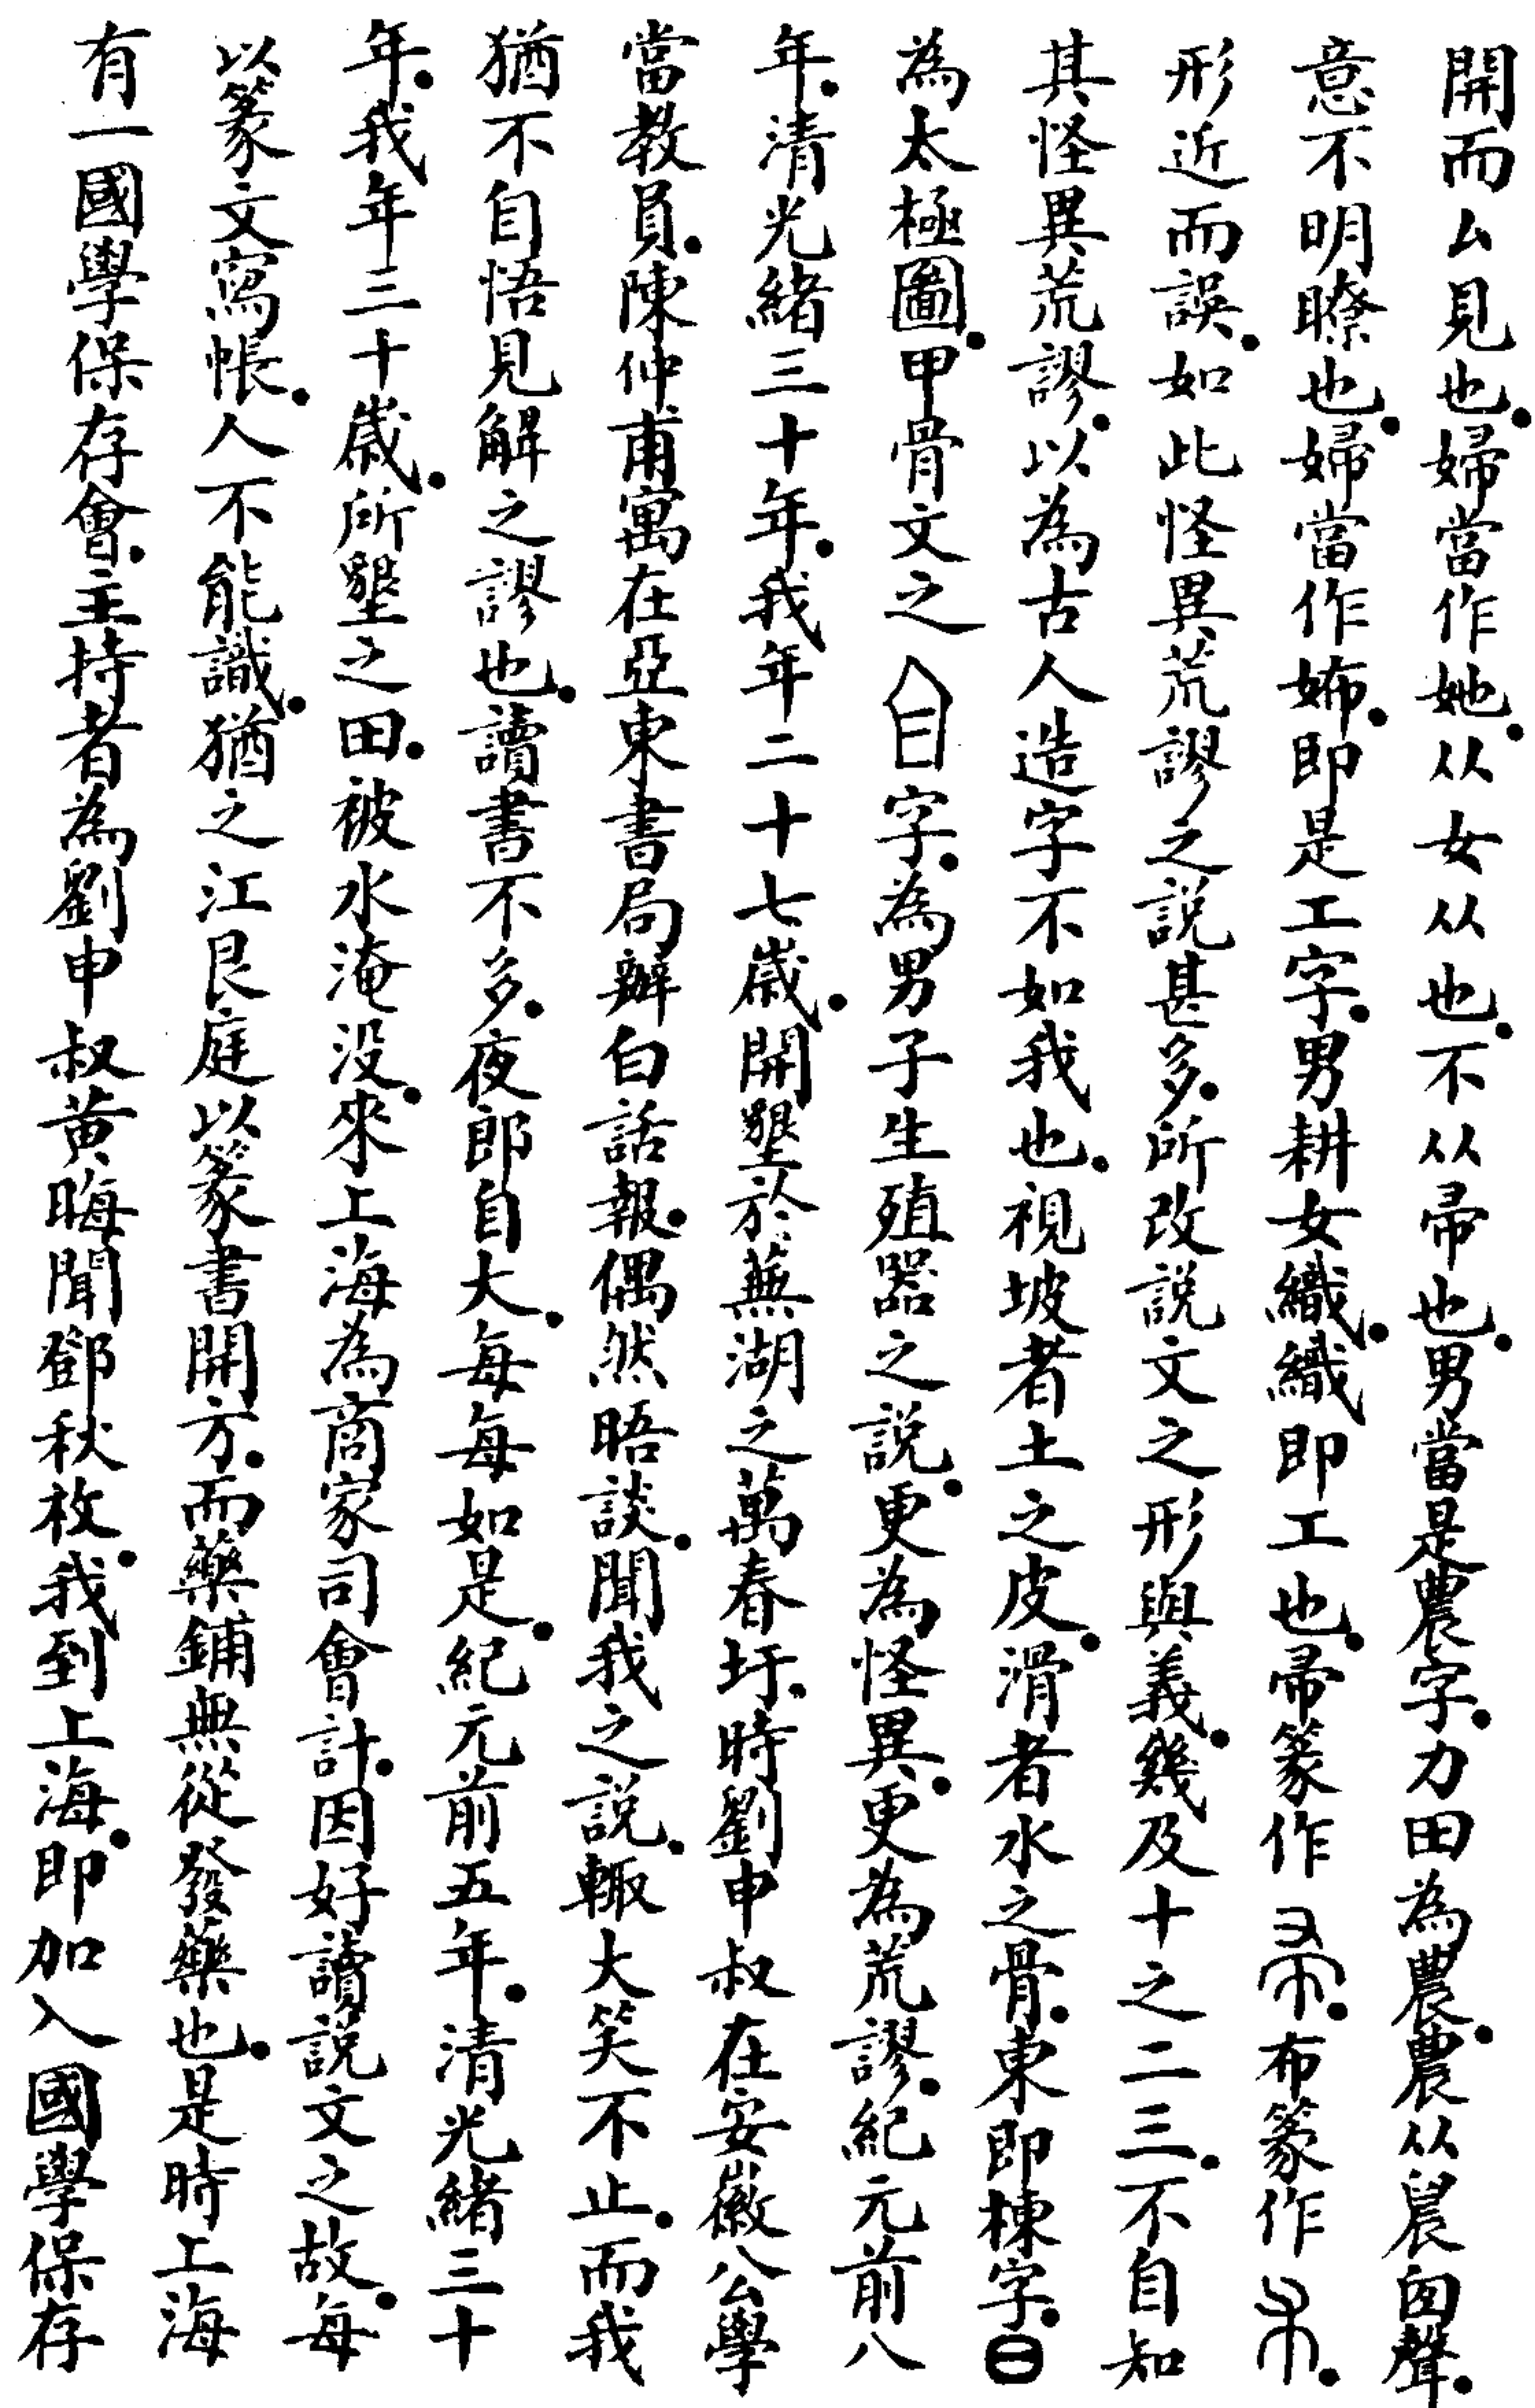 開而厶見也.婦當作她.从女从也.不从帚也.男當是農字.力田為農.農从䢅囪聲.
意不明瞭也.婦當作姉.即是工字.男耕女織.織即工也.帚篆作.布篆作.
形近而誤.如此怪異荒謬之說甚多.所改說文之形與義.幾及十之二三.不自知
其怪異荒謬.以為古人造字不如我也.視坡者土之皮.滑者水之骨.東即棟字.
為太極圖.甲骨文之字.為男子生殖器之說.更為怪異.更為荒謬.紀元前八
年.清光緒三十年.我年二十七歲.開墾於蕪湖之萬春圩.時劉申叔在安徽公學
當教員.陳仲甫寓在亞東書局辦白話報.偶然晤談.聞我之說.輙大笑不止.而我
猶不自悟見解之謬也.讀書不多.夜郎自大.每每如是.紀元前五年.清光緒三十
年.我年三十歲.所墾之田.被水淹没.來上海為商家司會計.因好讀說文之故.每
以篆文寫帳.人不能識.猶之江艮庭以篆書開方.而藥鋪無從發藥也.是時上海
有一國學保存會.主持者為劉申叔黃晦聞鄧秋枚.我到上海.即加入國學保存